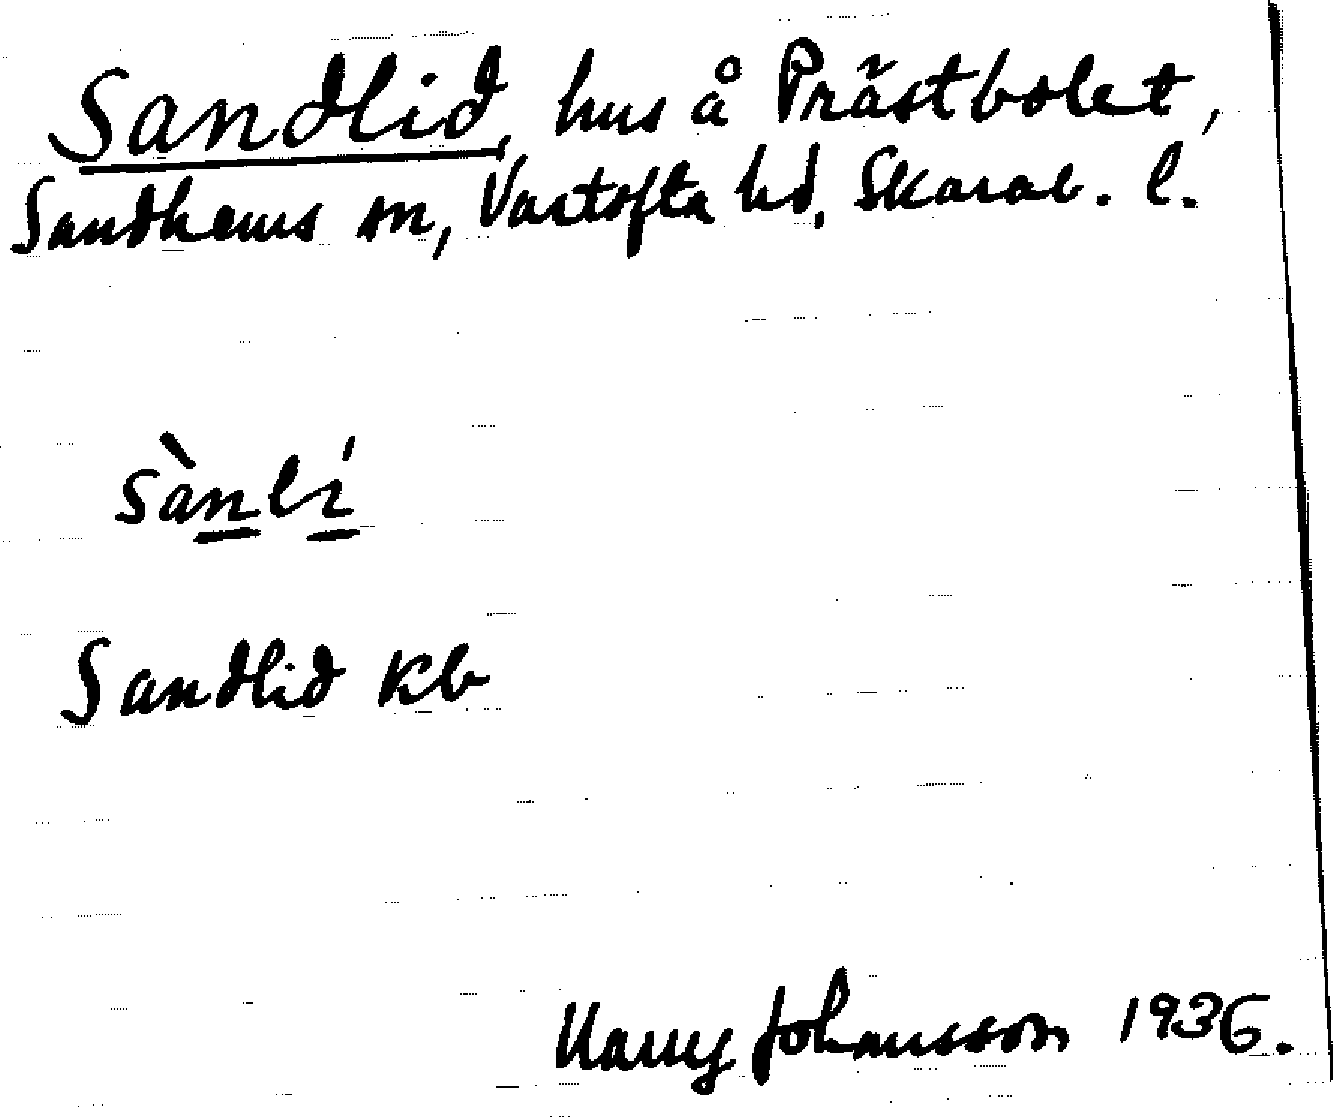 Sandlid, hus å Prästbolet,
Sandhems sn, Vartofta hd, Skarab. l.
sànlí
Sandlid Kb
Harry Johansson 1936.